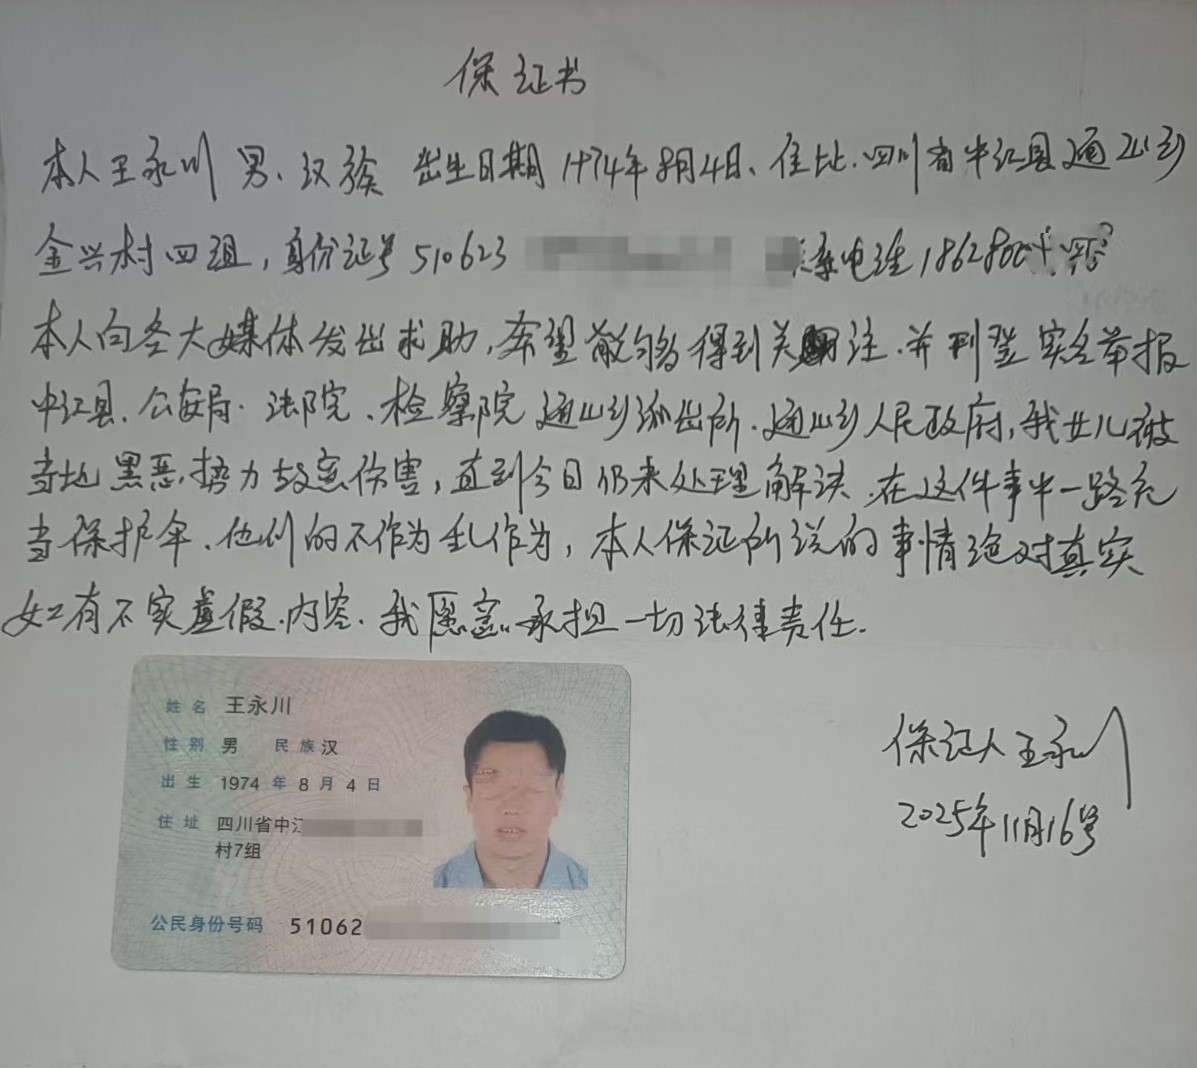 保证书
本人王永川 男、汉族 出生日期1974年8月4日、住址.四川省中江县通山乡
金兴村四组，身份证号510623 联系电话1862800
本人向各大媒体发出求助，希望能够得到关注.并刊登实名举报
中江县.公安局.法院、检察院 通山乡派出所.通山乡人民政府，我女儿被
当地黑恶.势力故意伤害，直到今日仍未处理解决.在这件事中一路充
当保护伞、他们的不作为乱作为，本人保证所说的事情绝对真实
如有不实虚假.内容.我愿意.承担一切法律责任.
保证人王永川
2025年11月16号
姓名 王永川
性别 男 民族 汉
出生 1974 年 8 月 4 日
住址 四川省中江
村7组
公民身份号码 51062